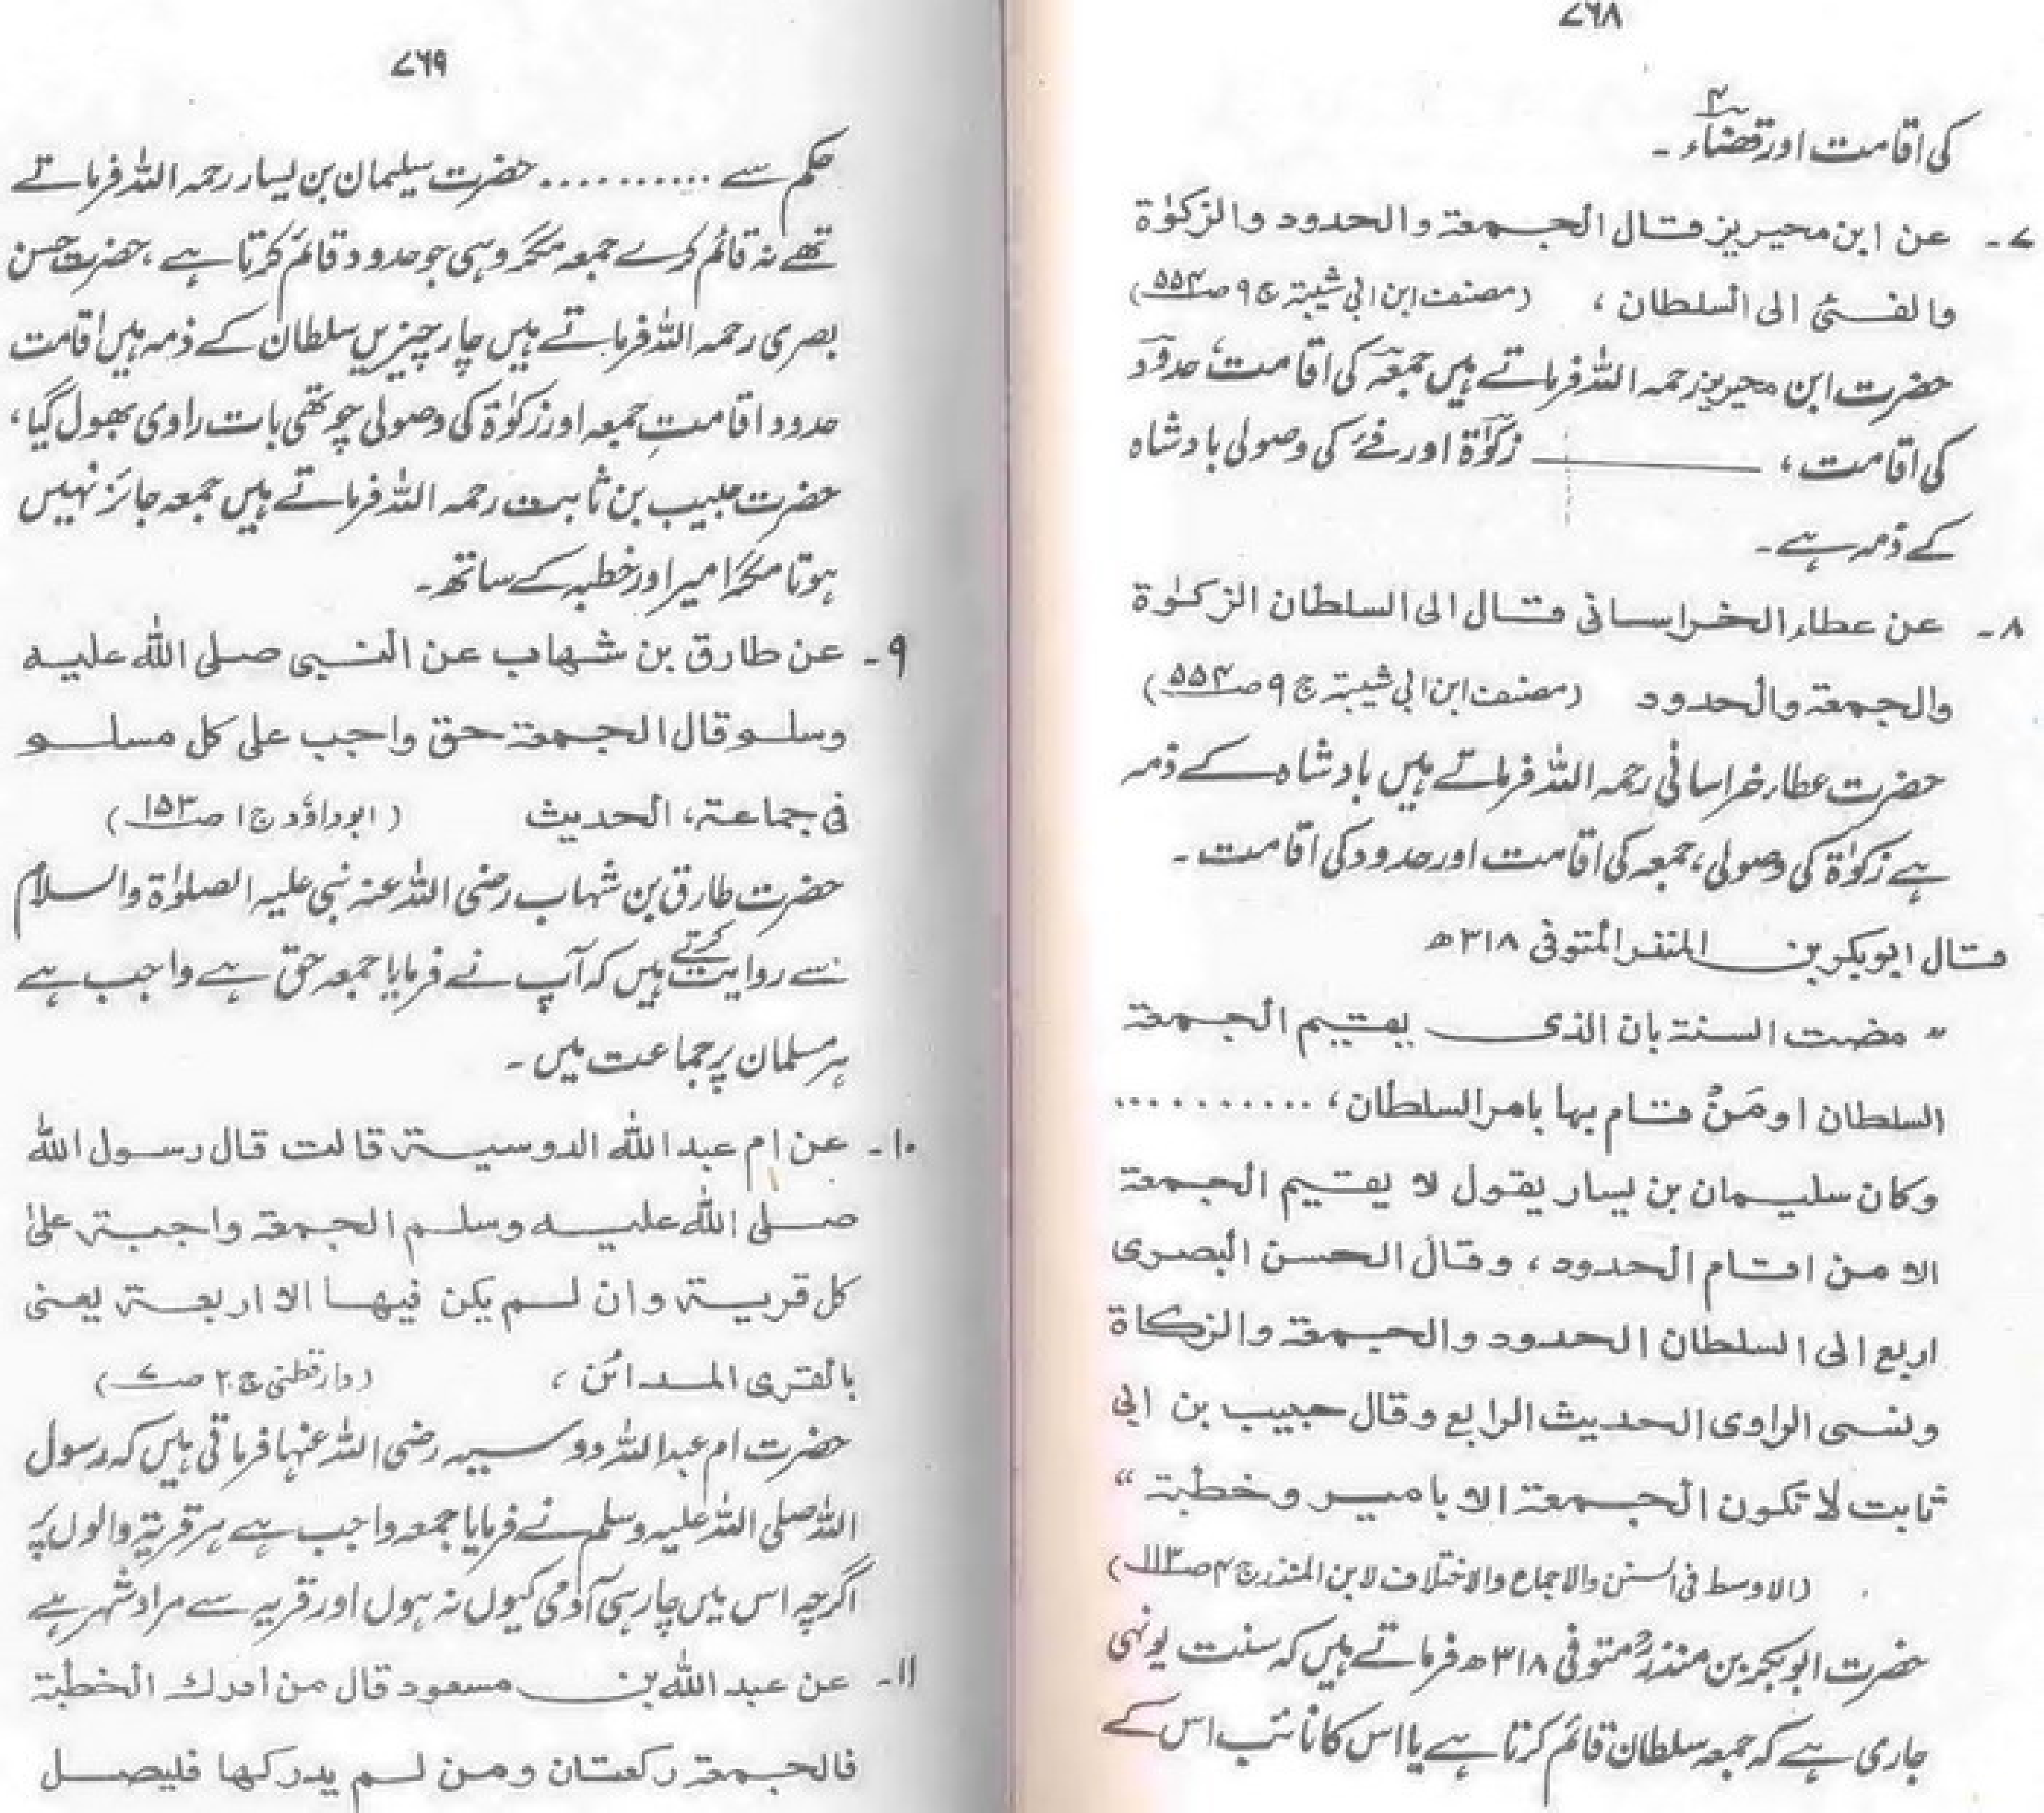 ۷۶۸
کی اقامت اور قضاء ۔
۷۔ عن ابن محیریز قال الجمعة والحدود والزکوٰة
والفئ الی السلطان ، (مصنف ابن ابی شیبة ج ۹ ص ۵۵۴)
حضرت ابن محیریز رحمہ اللہ فرماتے ہیں جمعہ کی اقامت، حدود
کی اقامت ، زکوٰۃ اور فئے کی وصولی بادشاہ
کے ذمہ ہے ۔
۸۔ عن عطاء الخراسانی قال الی السلطان الزکوٰة
والجمعة والحدود (مصنف ابن ابی شیبة ج ۹ ص ۵۵۴)
حضرت عطار خراسانی رحمہ اللہ فرماتے ہیں بادشاہ کے ذمہ
ہے زکوٰۃ کی وصولی ، جمعہ کی اقامت اور حدود کی اقامت ۔
قال ابوبکر بن المنذر المتوفی ۳۱۸ھ
" مضت السنة بان الذی یقیم الجمعة
السلطان او مَنْ قام بہا بامر السلطان ، ..........
وکان سلیمان بن یسار یقول لا یقیم الجمعة
الا من اقام الحدود ، وقال الحسن البصری
اربع الی السلطان الحدود والجمعة والزکاة
ونسی الراوی الحدیث الرابع وقال حبیب بن ابی
ثابت لا تکون الجمعة الا بامیر وخطبة "
(الاوسط فی السنن والاجماع والاختلاف لابن المنذر ج ۴ ص ۱۱۳)
حضرت ابوبکر بن منذرؒ متوفی ۳۱۸ھ فرماتے ہیں کہ سنت یونہی
جاری ہے کہ جمعہ سلطان قائم کرتا ہے یا اس کا نائب اس کے
۷۶۹
حکم سے .......... حضرت سیلمان بن یسار رحمہ اللہ فرماتے
تھے نہ قائم کرے جمعہ مگر وہی جو حدود قائم کرتا ہے ، حضرت حسن
بصری رحمہ اللہ فرماتے ہیں چار چیزیں سلطان کے ذمہ ہیں اقامت
حدود اقامتِ جمعہ اور زکوٰۃ کی وصولی چوتھی بات راوی بھول گیا ،
حضرت حبیب بن ثابت رحمہ اللہ فرماتے ہیں جمعہ جائز نہیں
ہوتا مگر امیر اور خطبہ کے ساتھ ۔
۹۔ عن طارق بن شہاب عن النبی صلی اللہ علیہ
وسلم قال الجمعة حق واجب علی کل مسلم
فی جماعة ، الحدیث (ابوداؤد ج ۱ ص ۱۵۳)
حضرت طارق بن شہاب رضی اللہ عنہ نبی علیہ الصلوٰۃ والسلام
سے روایت کرتے ہیں کہ آپ نے فرمایا جمعہ حق ہے واجب ہے
ہر مسلمان پر جماعت میں ۔
۱۰۔ عن ام عبد اللہ الدوسیة قالت قال رسول اللہ
صلی اللہ علیہ وسلم الجمعة واجبة علیٰ
کل قریة وان لم یکن فیہا الا اربعة یعنی
بالقری المدائن ، (دارقطنی ج ۲ ص ۷)
حضرت ام عبد اللہ دوسیہ رضی اللہ عنہا فرماتی ہیں کہ رسول
اللہ صلی اللہ علیہ وسلم نے فرمایا جمعہ واجب ہے ہر قریۃ والوں پر
اگرچہ اس میں چار ہی آدمی کیوں نہ ہوں اور قریہ سے مراد شہر ہے
۱۱۔ عن عبد اللہ بن مسعود قال من ادرك الخطبة
فالجمعة رکعتان ومن لم یدرکہا فلیصل